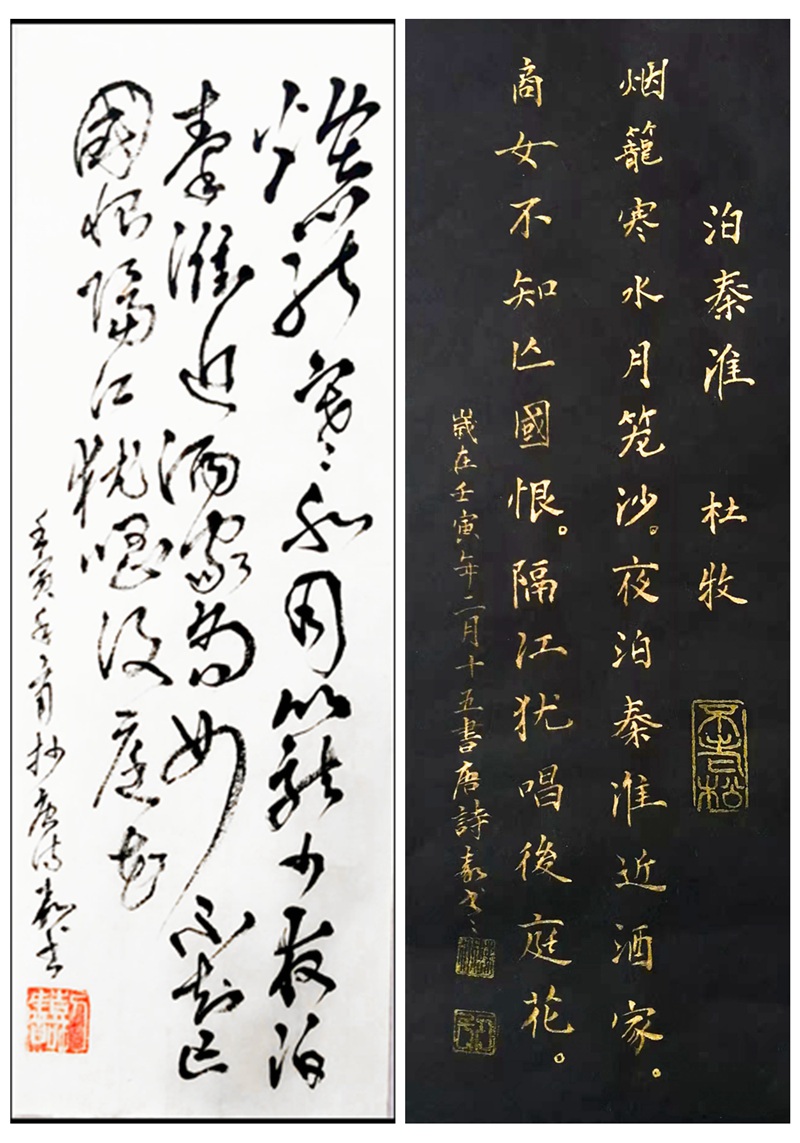 泊秦淮 杜牧
不老松
烟籠寒水月笼沙。夜泊秦淮近酒家。
商女不知亾國恨。隔江犹唱後庭花。
歲在壬寅年二月十五書唐詩嘉书
烟籠寒水月籠沙夜泊
秦淮近酒家商女不知亡
國恨隔江犹唱後庭花
壬寅年二月抄唐诗嘉书